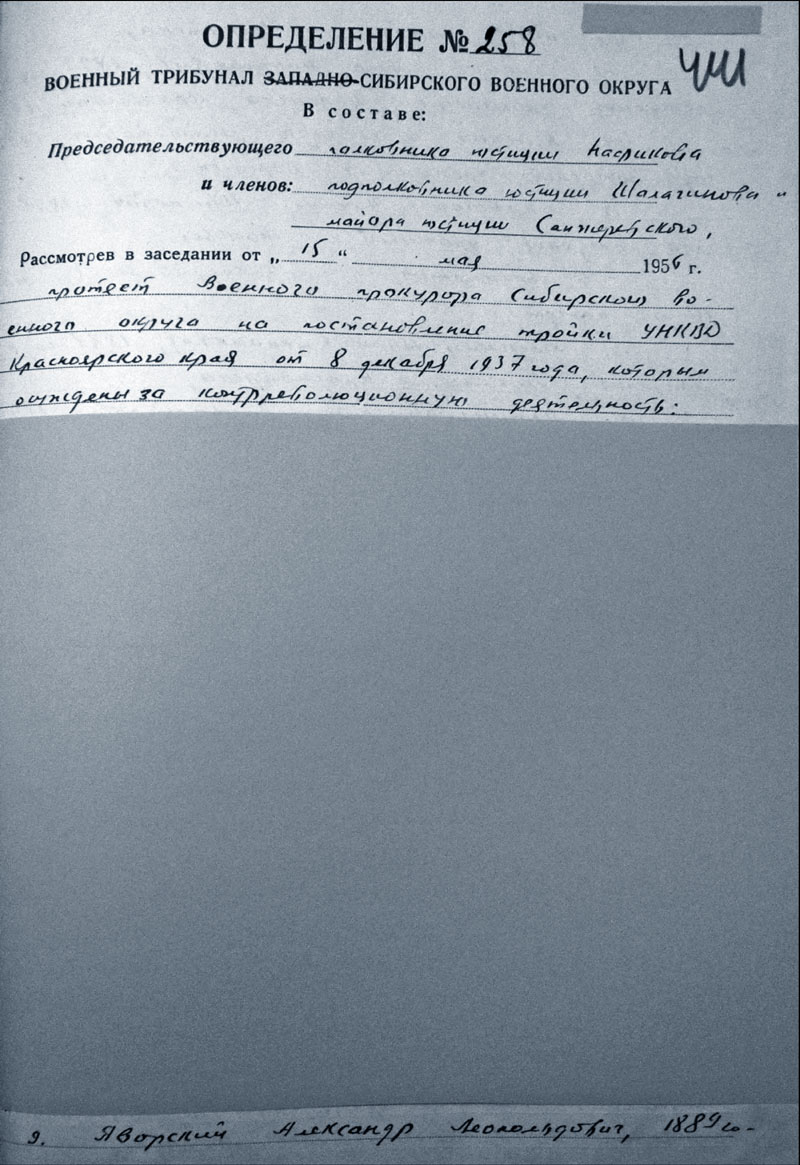 ОПРЕДЕЛЕНИЕ № 258
ВОЕННЫЙ ТРИБУНАЛ ЗАПАДНО-СИБИРСКОГО ВОЕННОГО ОКРУГА
В составе:
Председательствующего полковника юстиции
и членов: подполковника юстиции Шалагинова и
майора юстиции
Рассмотрев в заседании от „ 15 “ мая 1956 г.
протест Военного прокурора Сибирского во-
енного округа на постановление тройки УНКВД
Красноярского края от 8 декабря 1937 года, которым
осуждены за контрреволюционную деятельность:
9. Яворский Александр Леопольдович, 1889 го-